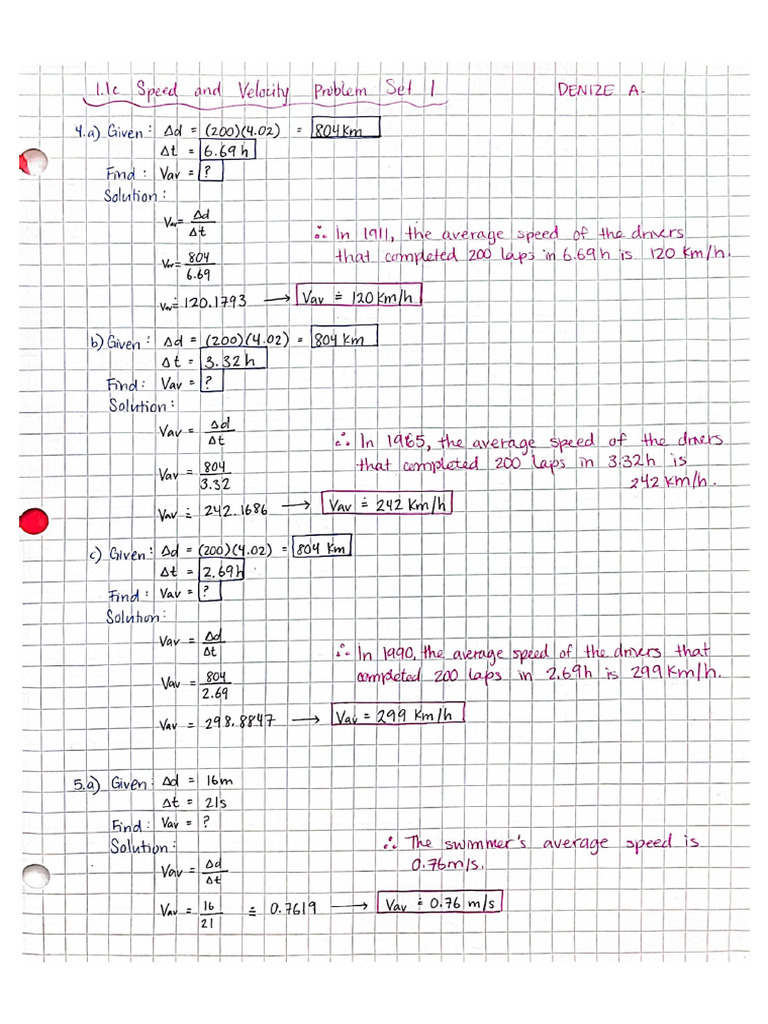 1.1c Speed and Velocity Problem Set 1 DENIZE A.
4.a) Given: Δd = (200)(4.02) = 804 Km
Δt = 6.69 h
Find: Vav = ?
Solution:
Vav = Δd
Δt
Vav = 804
6.69
Vav ≐ 120.1793 → Vav ≐ 120 Km/h
∴ In 1911, the average speed of the drivers
that completed 200 laps in 6.69h is 120 Km/h.
b) Given: Δd = (200)(4.02) = 804 Km
Δt = 3.32 h
Find: Vav = ?
Solution:
Vav = Δd
Δt
Vav = 804
3.32
Vav ≐ 242.1686 → Vav ≐ 242 Km/h
∴ In 1965, the average speed of the drivers
that completed 200 laps in 3.32h is
242 Km/h.
c) Given: Δd = (200)(4.02) = 804 Km
Δt = 2.69 h
Find: Vav = ?
Solution:
Vav = Δd
Δt
Vav = 804
2.69
Vav = 298.8847 → Vav = 299 Km/h
∴ In 1990, the average speed of the drivers that
completed 200 laps in 2.69h is 299 Km/h.
5.a) Given: Δd = 16m
Δt = 21s
Find: Vav = ?
Solution:
Vav = Δd
Δt
Vav = 16
21
≐ 0.7619 → Vav ≐ 0.76 m/s
∴ The swimmer's average speed is
0.76m/s.